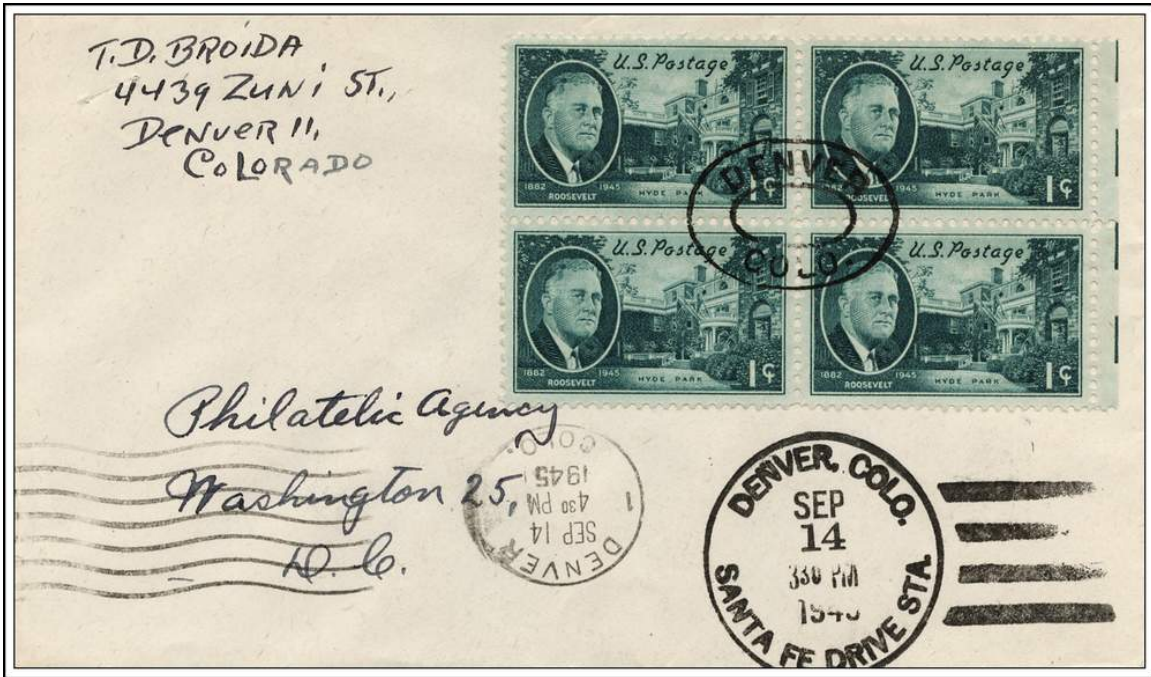 T.D. BROIDA
4439 ZUNI ST.,
DENVER 11,
COLORADO
U.S. Postage
1882 1945
ROOSEVELT
HYDE PARK
1¢
U.S. Postage
1882 1945
ROOSEVELT
HYDE PARK
1¢
U.S. Postage
1882 1945
ROOSEVELT
HYDE PARK
1¢
U.S. Postage
1882 1945
ROOSEVELT
HYDE PARK
1¢
DENVER
COLO.
Philatelic Agency
Washington 25,
D.C.
DENVER 1
SEP 14
430 PM
1945
COLO.
DENVER, COLO.
SEP
14
330 PM
1945
SANTA FE DRIVE STA.